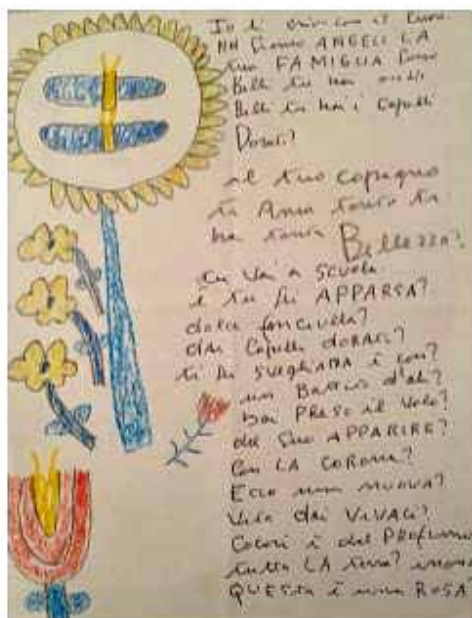 Io ti
ANGELI LA
tua FAMIGLIA
Belli tu hai occhi
Belli tu hai i Capelli
Dorati?
al tuo copagno
ti Ama tanto tu
hai tanta Bellezza?
tu Vai a scuola
e tu sei APPARSA?
dolce fanciulla?
dai Capelli dorati?
ti sei SVEGLIATA è con?
un Battito d'ali?
hai PRESO il Volo?
del suo APPARIRE?
Con LA CORONA?
Ecco una nuova?
Vita dai ViVACi?
Colori è del PROfumo
tutta LA terra?
QUESta è una ROSA